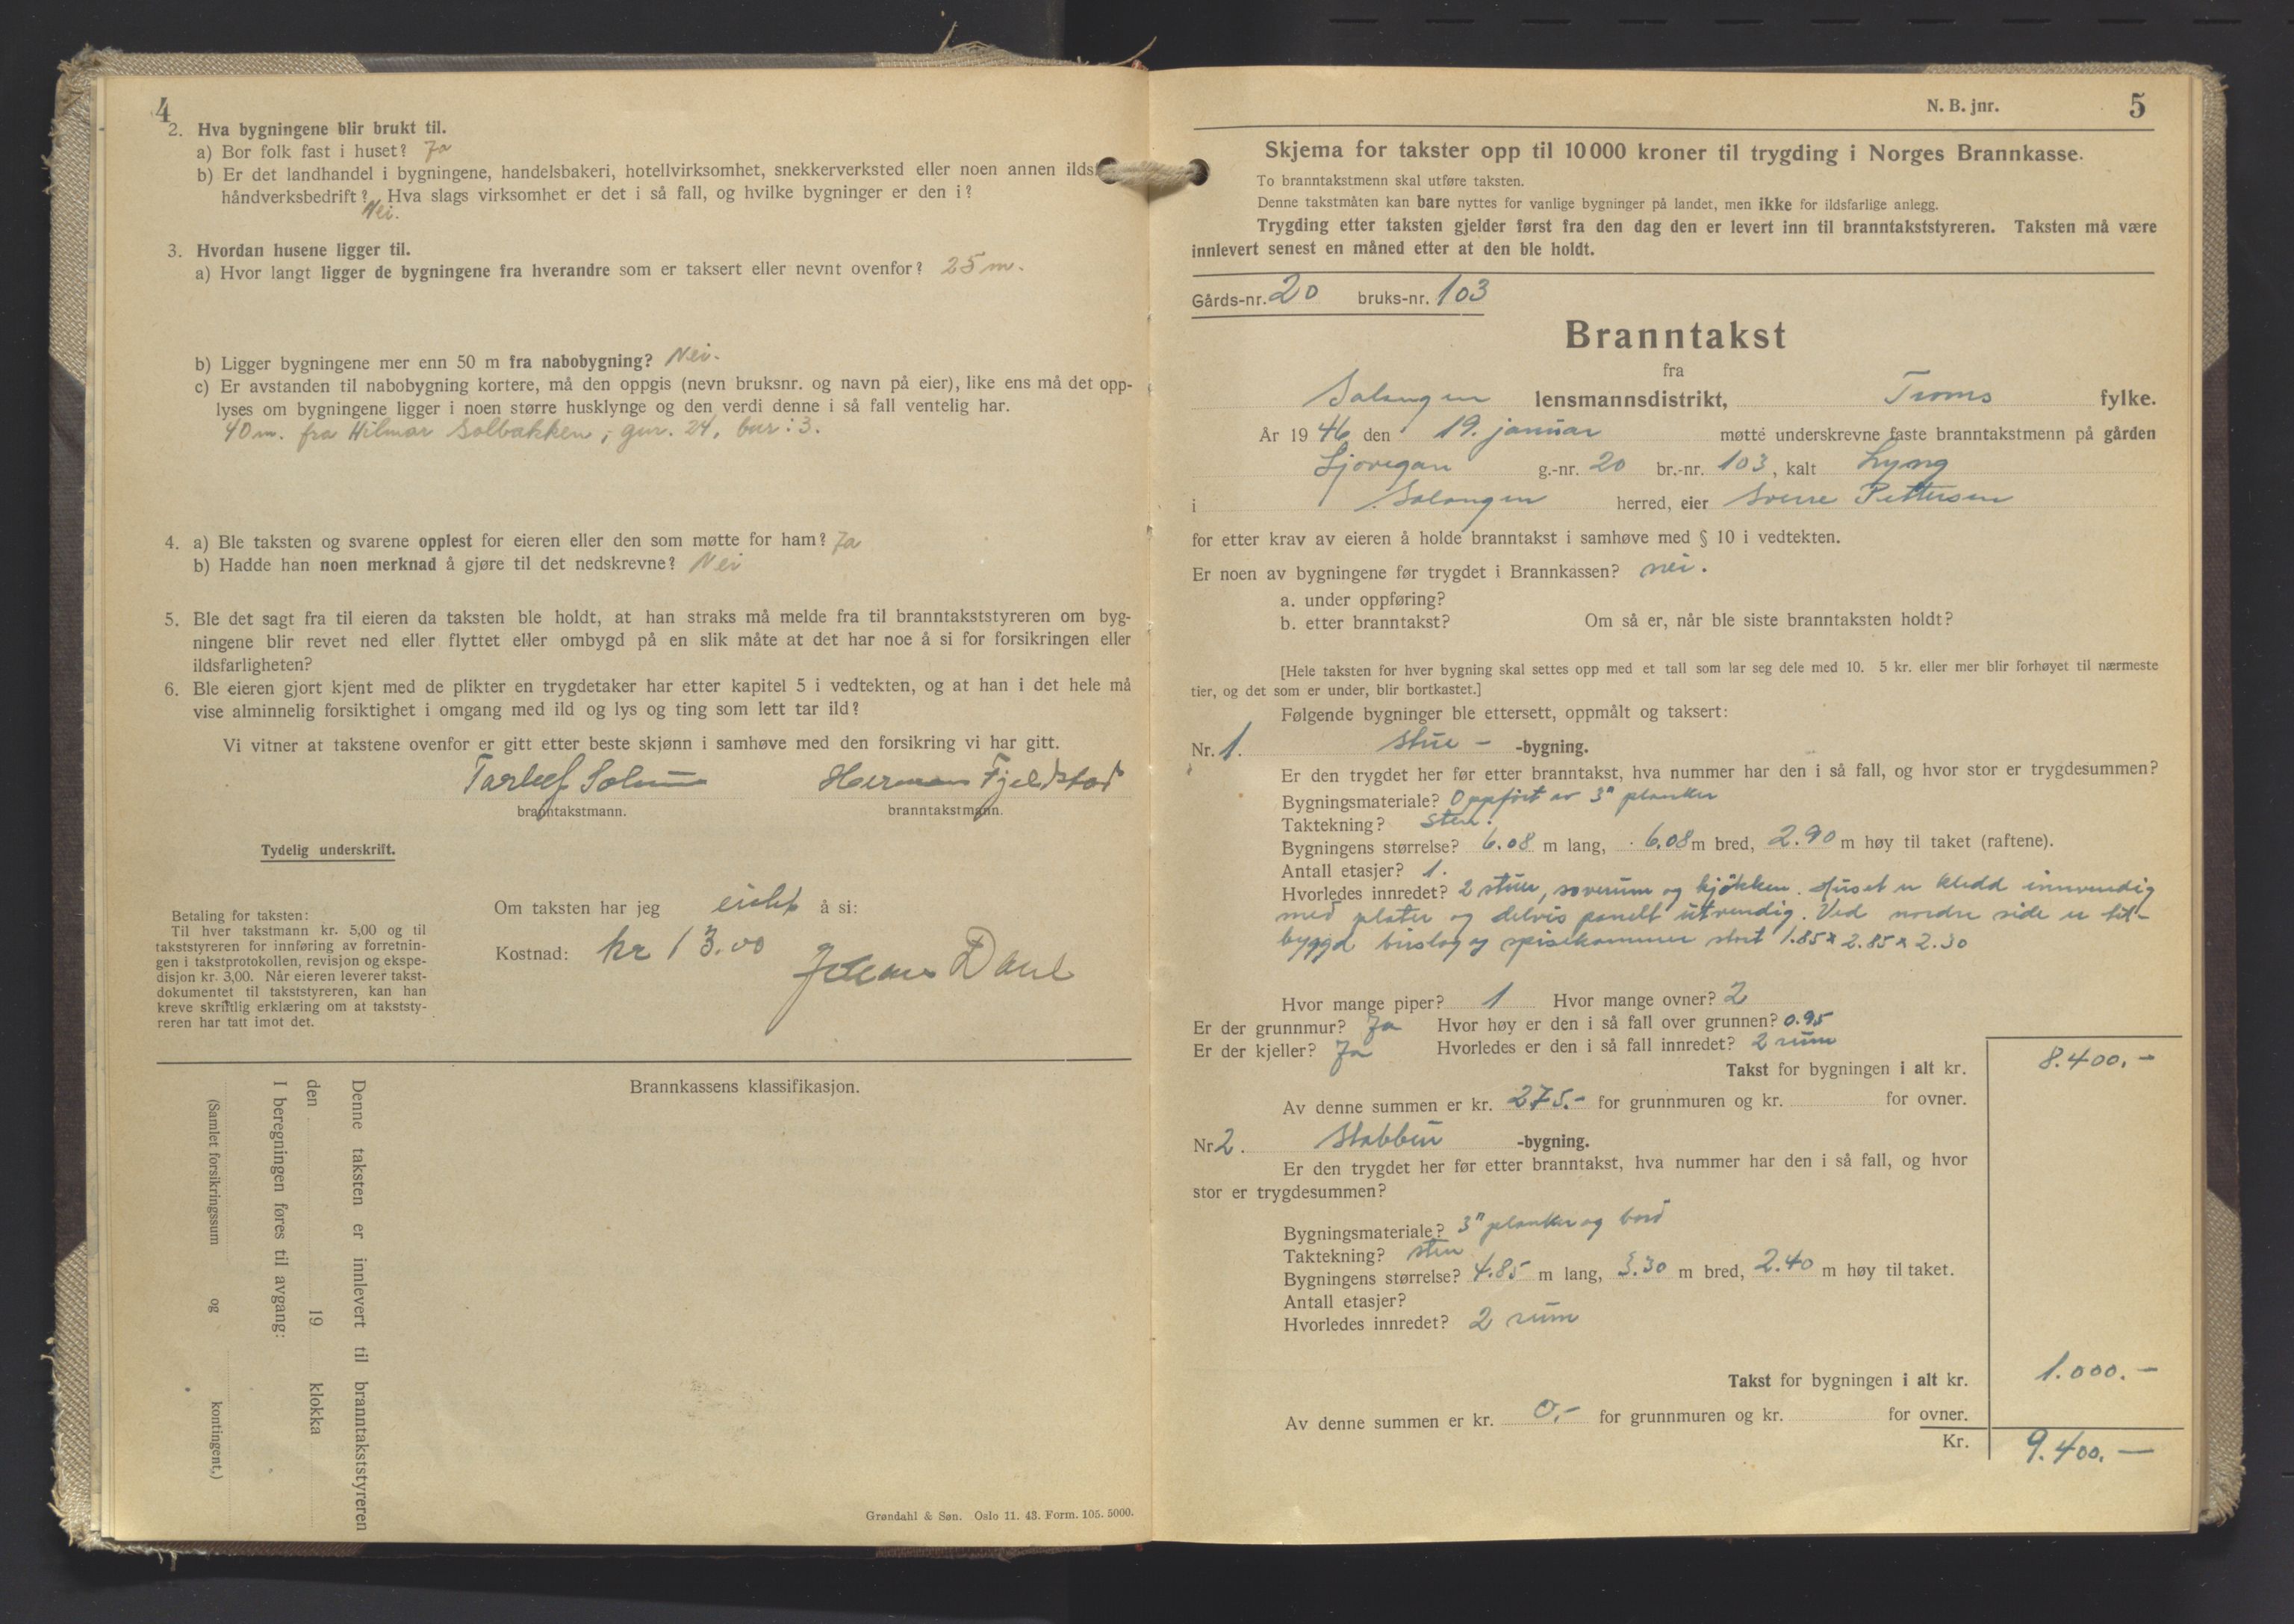 4
2. Hva bygningene blir brukt til.
a) Bor folk fast i huset? Ja
b) Er det landhandel i bygningene, handelsbakeri, hotellvirksomhet, snekkerverksted eller noen annen ilds
håndverksbedrift? Hva slags virksomhet er det i så fall, og hvilke bygninger er den i?
Nei.
3. Hvordan husene ligger til.
a) Hvor langt ligger de bygningene fra hverandre som er taksert eller nevnt ovenfor? 25 m.
b) Ligger bygningene mer enn 50 m fra nabobygning? Nei.
c) Er avstanden til nabobygning kortere, må den oppgis (nevn bruksnr. og navn på eier), like ens må det opp-
lyses om bygningene ligger i noen større husklynge og den verdi denne i så fall ventelig har.
40 m. fra Hilmar Solbakken, gnr. 24, bnr: 3.
4. a) Ble taksten og svarene opplest for eieren eller den som møtte for ham? Ja
b) Hadde han noen merknad å gjøre til det nedskrevne? Nei
5. Ble det sagt fra til eieren da taksten ble holdt, at han straks må melde fra til branntakststyreren om byg-
ningene blir revet ned eller flyttet eller ombygd på en slik måte at det har noe å si for forsikringen eller
ildsfarligheten?
6. Ble eieren gjort kjent med de plikter en trygdetaker har etter kapitel 5 i vedtekten, og at han i det hele må
vise alminnelig forsiktighet i omgang med ild og lys og ting som lett tar ild?
Vi vitner at takstene ovenfor er gitt etter beste skjønn i samhøve med den forsikring vi har gitt.
Tarlef Solum Herman Fjeldstad
branntakstmann. branntakstmann.
Tydelig underskrift.
Om taksten har jeg å si:
Kostnad: kr 13.00
Dahl
Betaling for taksten:
Til hver takstmann kr. 5,00 og til
takststyreren for innføring av forretnin-
gen i takstprotokollen, revisjon og ekspe-
disjon kr. 3,00. Når eieren leverer takst-
dokumentet til takststyreren, kan han
kreve skriftlig erklæring om at takststy-
reren har tatt imot det.
Brannkassens klassifikasjon.
Denne taksten er innlevert til branntakststyreren
den 19 klokka
I beregningen føres til avgang:
(Samlet forsikringssum og kontingent.)
Grøndahl & Søn. Oslo 11. 43. Form. 105. 5000.
N. B. jnr. 5
Skjema for takster opp til 10 000 kroner til trygding i Norges Brannkasse.
To branntakstmenn skal utføre taksten.
Denne takstmåten kan bare nyttes for vanlige bygninger på landet, men ikke for ildsfarlige anlegg.
Trygding etter taksten gjelder først fra den dag den er levert inn til branntakststyreren. Taksten må være
innlevert senest en måned etter at den ble holdt.
Gårds-nr. 20 bruks-nr. 103
Branntakst
fra
Salangen lensmannsdistrikt, Troms fylke.
År 1946 den 19. januar møtte underskrevne faste branntakstmenn på gården
Sjøvegan g.-nr. 20 br.-nr. 103, kalt Lyng
i Salangen herred, eier Sverre Pettersen
for etter krav av eieren å holde branntakst i samhøve med § 10 i vedtekten.
Er noen av bygningene før trygdet i Brannkassen? nei.
a. under oppføring?
b. etter branntakst? Om så er, når ble siste branntaksten holdt?
[Hele taksten for hver bygning skal settes opp med et tall som lar seg dele med 10. 5 kr. eller mer blir forhøyet til nærmeste
tier, og det som er under, blir bortkastet.]
Følgende bygninger ble ettersett, oppmålt og taksert:
Nr. 1. Stue - -bygning.
Er den trygdet her før etter branntakst, hva nummer har den i så fall, og hvor stor er trygdesummen?
Bygningsmateriale? Oppført av 3" planker
Taktekning? Sten.
Bygningens størrelse? 6.08 m lang, 6.08 m bred, 2.90 m høy til taket (raftene).
Antall etasjer? 1.
Hvorledes innredet? 2 stuer, soverum og kjøkken. Huset er kledd innvendig
med plater og delvis panelt utvendig. Ved nordre side er til-
byggd bislag og spisekammer stort 1.85 x 2.85 x 2.30
Hvor mange piper? 1 Hvor mange ovner? 2
Er der grunnmur? Ja Hvor høy er den i så fall over grunnen? 0.95
Er der kjeller? Ja Hvorledes er den i så fall innredet? 2 rum
Takst for bygningen i alt kr. 8.400,-
Av denne summen er kr. 275.- for grunnmuren og kr. for ovner.
Nr 2. Stabbur -bygning.
Er den trygdet her før etter branntakst, hva nummer har den i så fall, og hvor
stor er trygdesummen?
Bygningsmateriale? 3" planker og bord
Taktekning? sten
Bygningens størrelse? 4.85 m lang, 3.30 m bred, 2.40 m høy til taket.
Antall etasjer?
Hvorledes innredet? 2 rum
Takst for bygningen i alt kr. 1.000.-
Av denne summen er kr. 0,- for grunnmuren og kr. for ovner.
Kr. 9.400.-